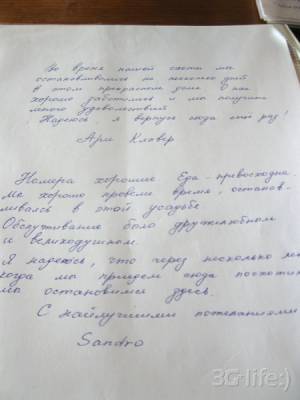 Во время нашей охоты мы
останавливались на несколько дней
в этом прекрасном доме. О нас
хорошо заботились и мы получили
много удовольствия
Надеюсь я вернусь сюда ещё раз!
Ари Клавер
Номера хорошие. Еда - превосходна.
Мы хорошо провели время, останав-
ливаясь в этой усадьбе
Обслуживание было дружелюбном
и великодушном.
Я надеюсь, что через несколько
когда мы приедем сюда
мы остановимся здесь.
С наилучшими пожеланиями
Sandro
3G-life:)